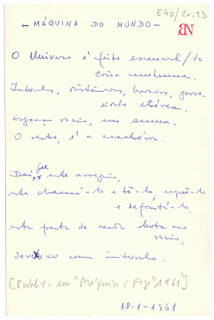 E40/Cx.13
BN
- MÁQUINA DO MUNDO -
O Universo é feito essencial/ de
coisa nenhuma.
Intervalos, distâncias, buracos, poro-
sidade etérea.
Espaço vazio, em suma.
O resto, é a matéria.
Daí, que este arrepio,
este chamá-lo e tê-lo, erguê-lo
e defrontá-lo,
esta fresta de nada aberta no
vazio,
deve ser um intervalo.
[Public. em "Máquina de Fogo" 1961]
18-1-1961